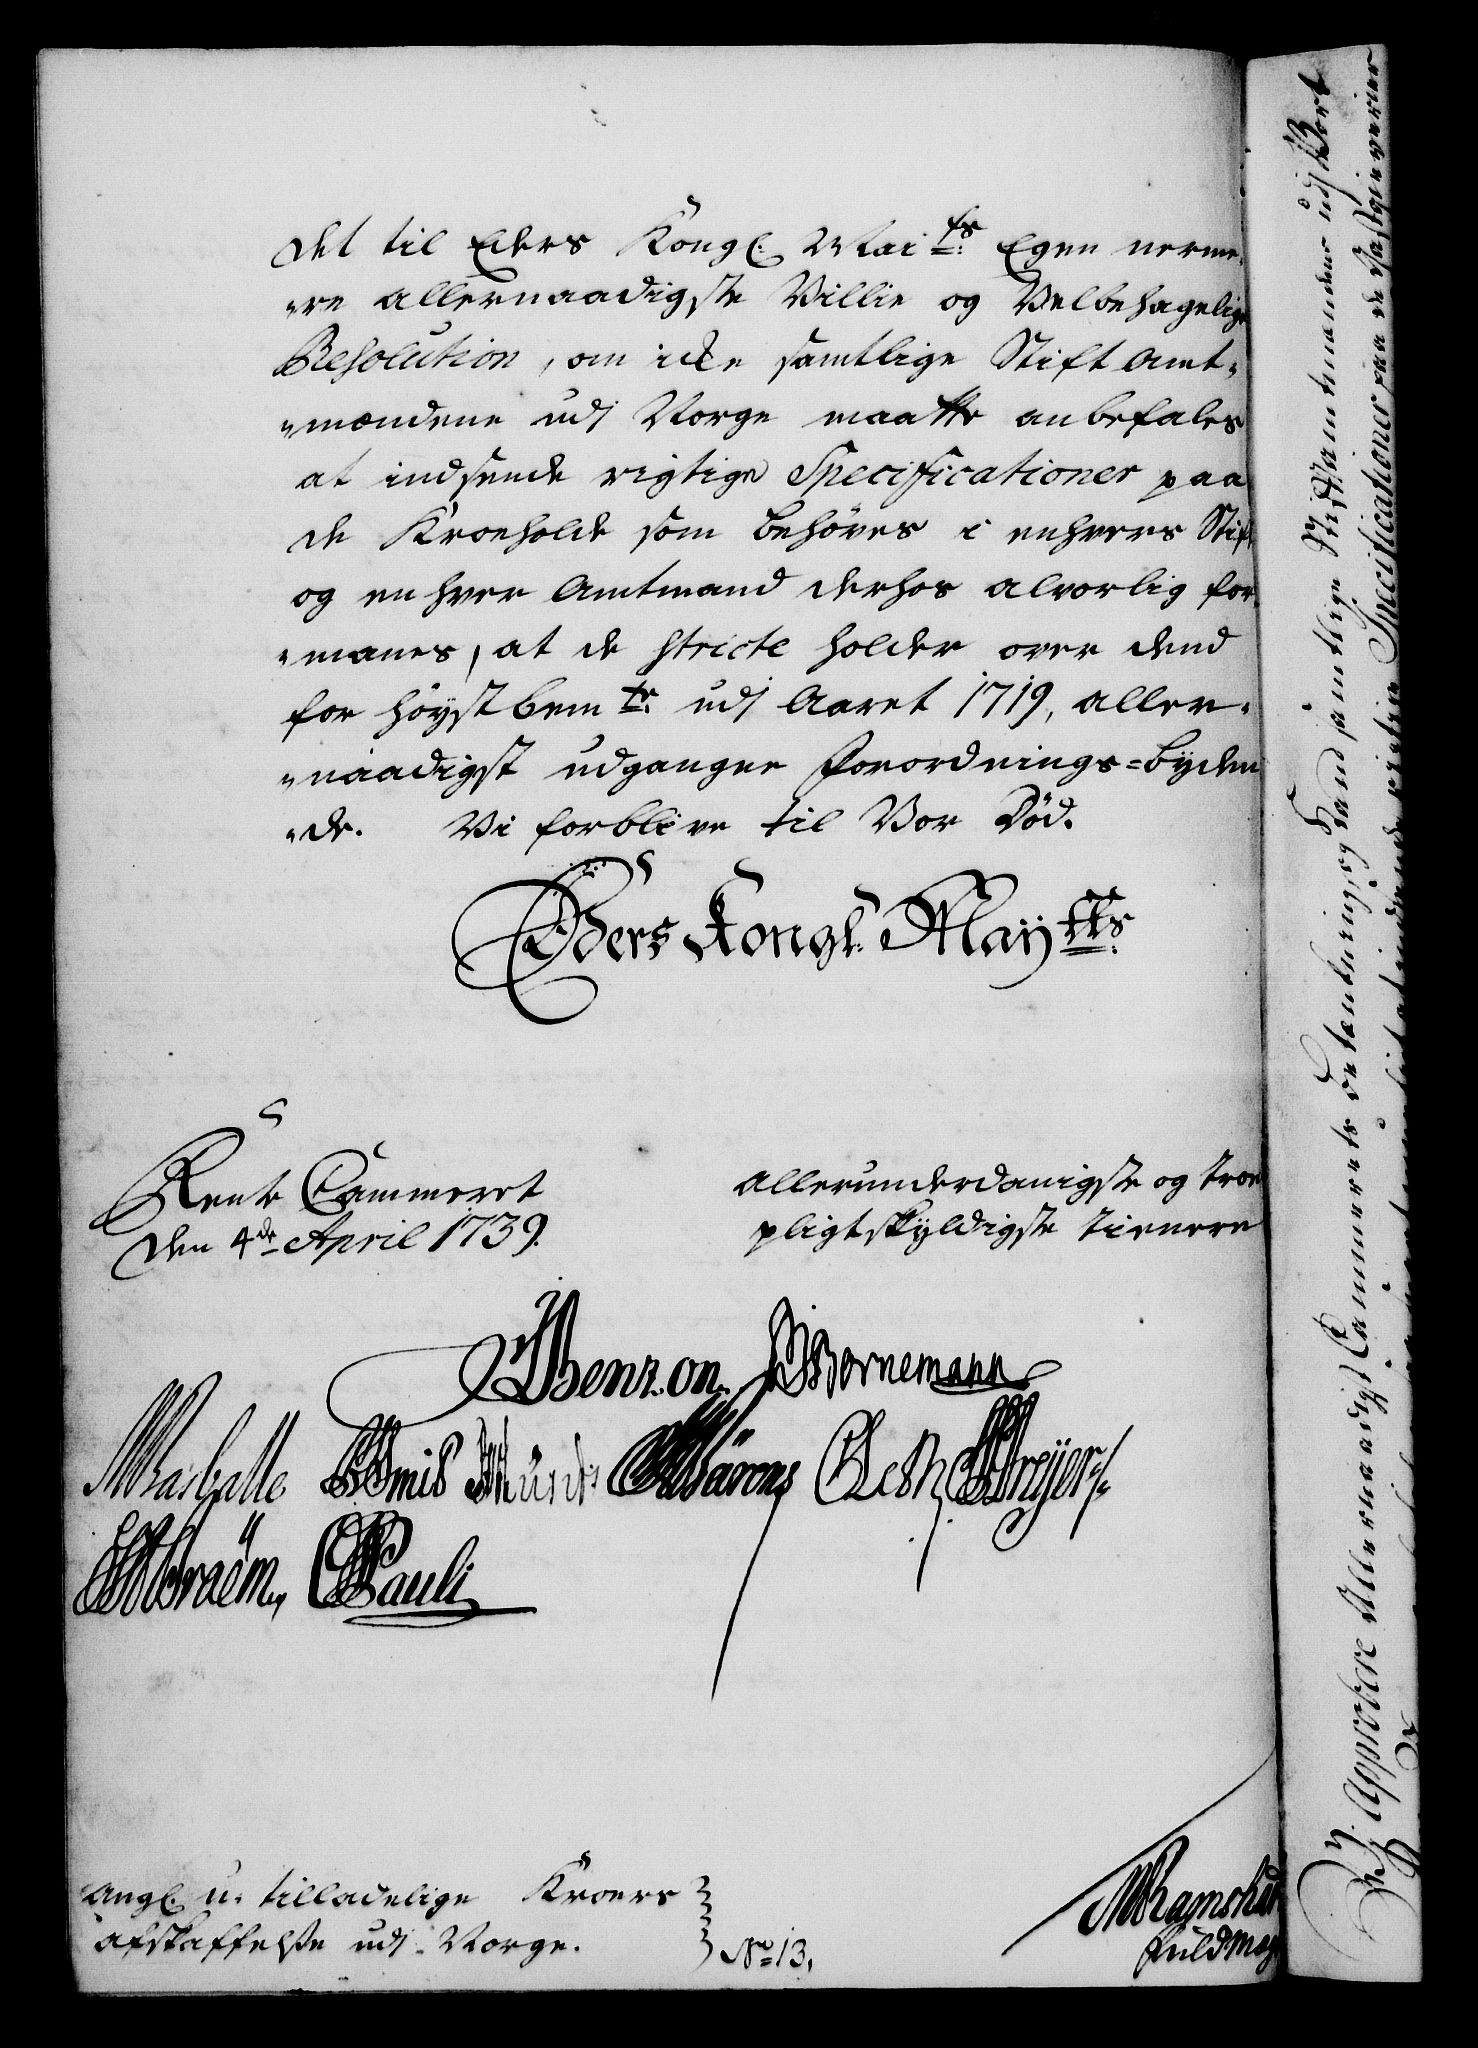 det til Eders Kongl. Mai ts. Egen nerme„
„re allernaadigste Villie og Velbehagelige
Resolution, om icke samtlige Stift Amt„
„mændene udj Norge maatte anbefales
at indsende rigtige Specificationer paa
de Kroeholde som behöves i enhvers Stift
og enhver Amtmand derhos alvorlig for„
„manes, at de stricte holder over dend
for höystbem te. udj Aaret 1719, aller„
„naadigst udgangne Forordnings-byden
„de. Vi forblive til Vor Död.
Eders Kongl. Maytts.
Rente Cammeret
den 4de April 1739.
Allerunderdanigste og troe
pligtskyldigste tienere
Benzon. Bornemann
Münch Bärens Dreyer
Braëm, Pauli
Angl. u-tilladelige Kroers
afskaffelse udj Norge.
No 13,
Ramshar
fuldmeg
Vj Approbere Allernaadigst Cammerets betænkning, og Hand samtlige Stiftamtmændene udj Vort
Specificationer paa de